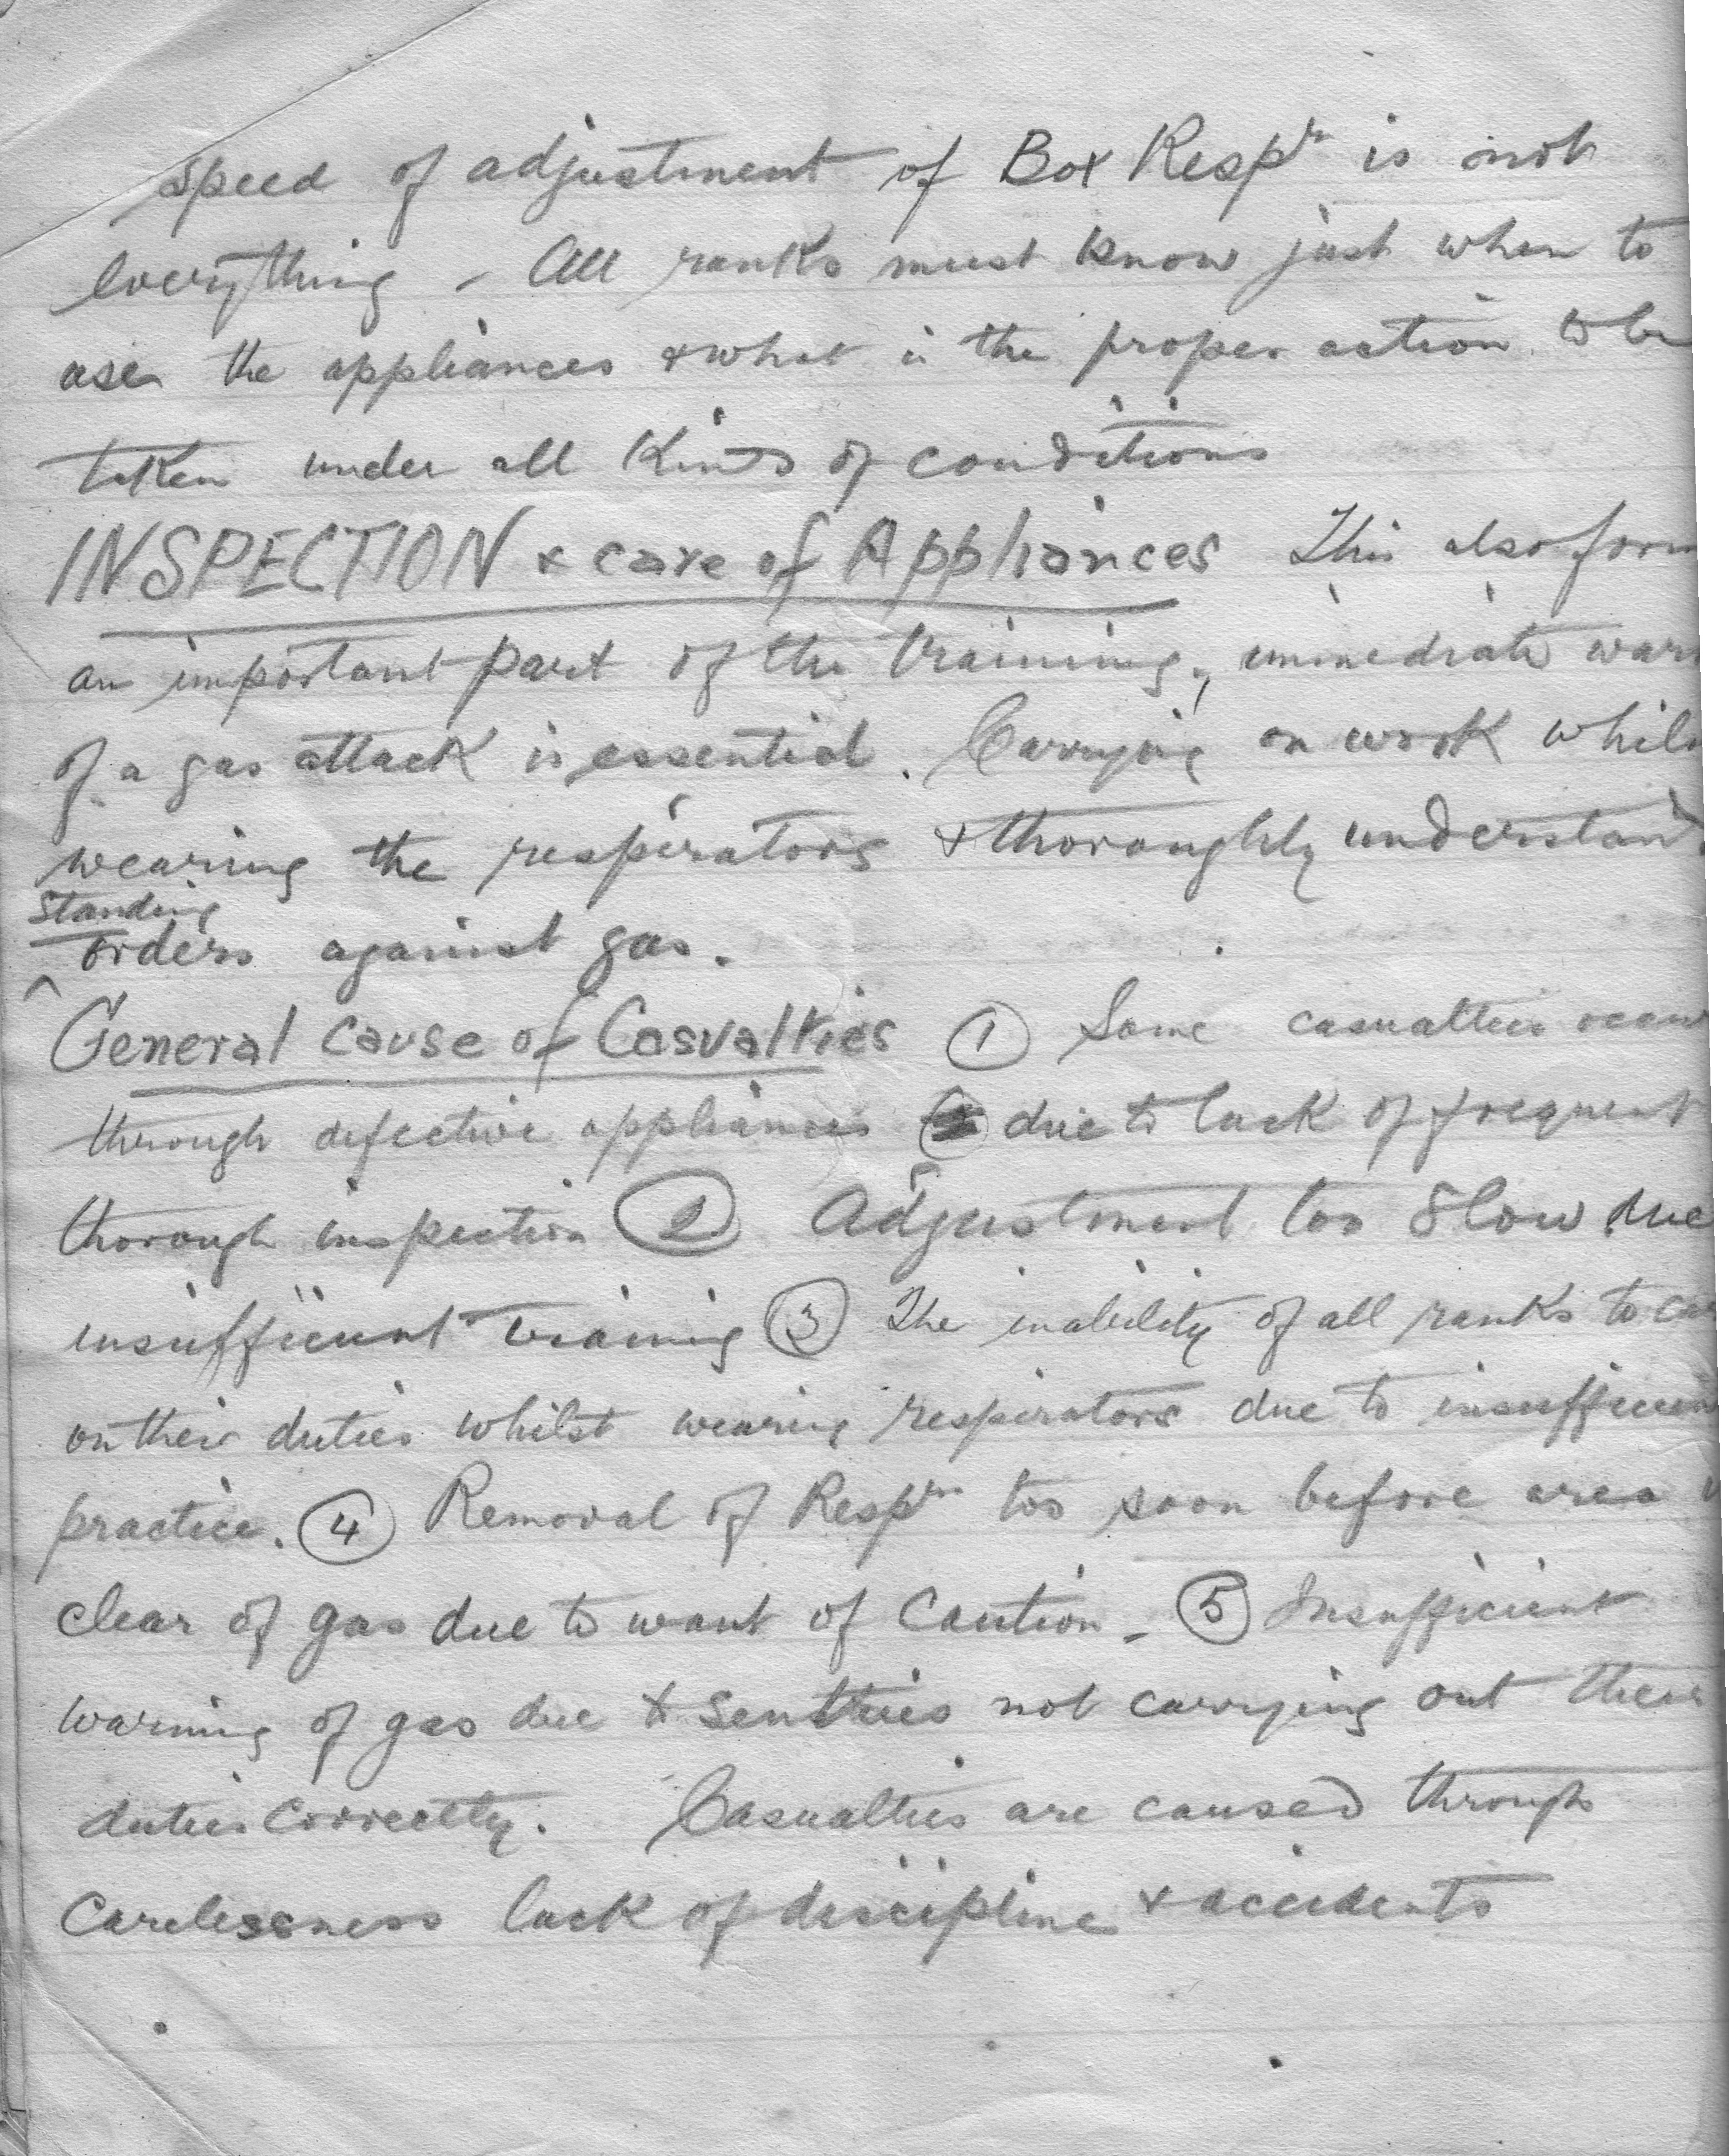 speed of adjustment of Box Respr is not
everything - All ranks must know just when to
use the appliances & what is the proper action to be
taken under all kinds of conditions
INSPECTION & care of Appliances This also form
an important part of the training, immediate warn
of a gas attack is essential. Carrying on work whils
wearing the respirators & thoroughly understand
standing
orders against gas.
General cause of Casualties ① Some casualties occur
through defective appliances due to lack of frequent
thorough inspection ② Adjustment too slow due
insufficient training ③ The inability of all ranks to car
on their duties whilst wearing respirators due to insufficien
practice. ④ Removal of Respr too soon before area
clear of gas due to want of caution - ⑤ Insufficient
warning of gas due to sentries not carrying out their
duties correctly. Casualties are caused through
Carelessness lack of discipline & accidents